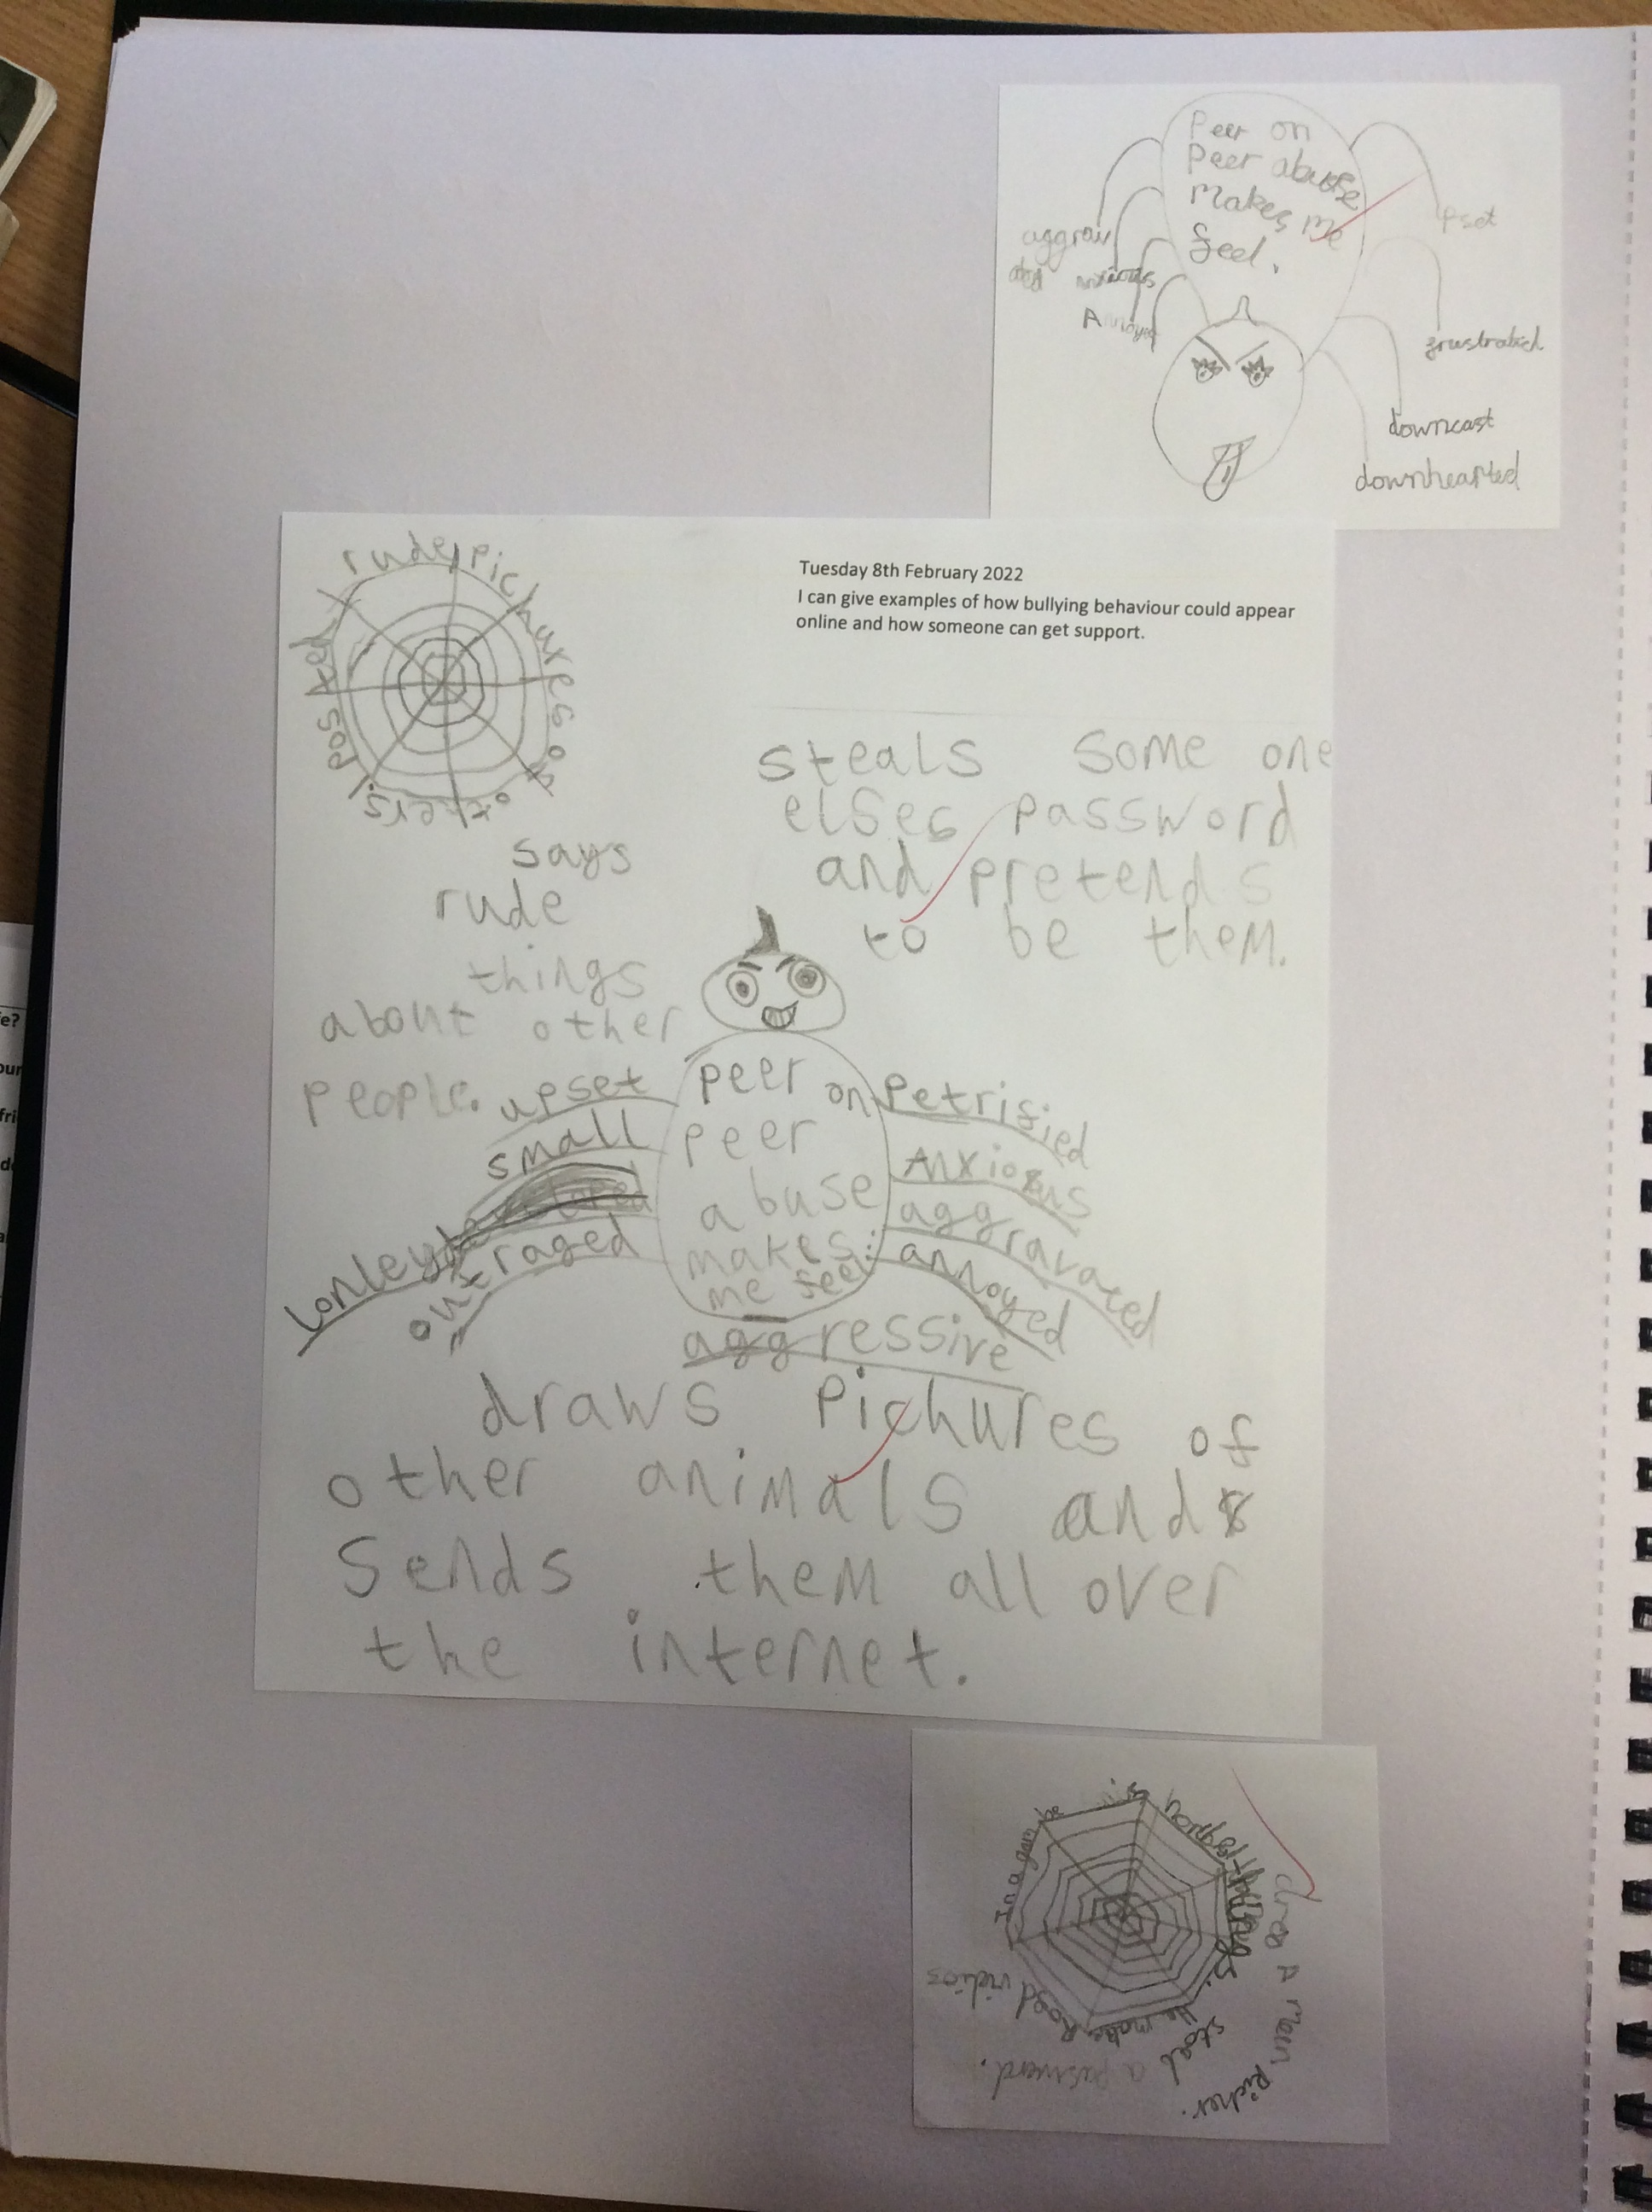 Peer on
Peer abuse
Makes me
feel.
aggrav
ated
anxious
Annoyed
upset
frustrated
downcast
downhearted
Tuesday 8th February 2022
I can give examples of how bullying behaviour could appear
online and how someone can get support.
Posted rude pichures of others
steals some one
elses password
and pretends
to be them.
says
rude
things
about other
people.
peer on
peer
abuse
makes
me feel:
upset
small
lonley
outraged
petrified
Anxious
aggravated
annoyed
aggressive
draws pichures of
other animals and
sends them all over
the internet.
In a game he
horrible things.
He make
Roed vidios
stoel a password.
drea A meen Richer.